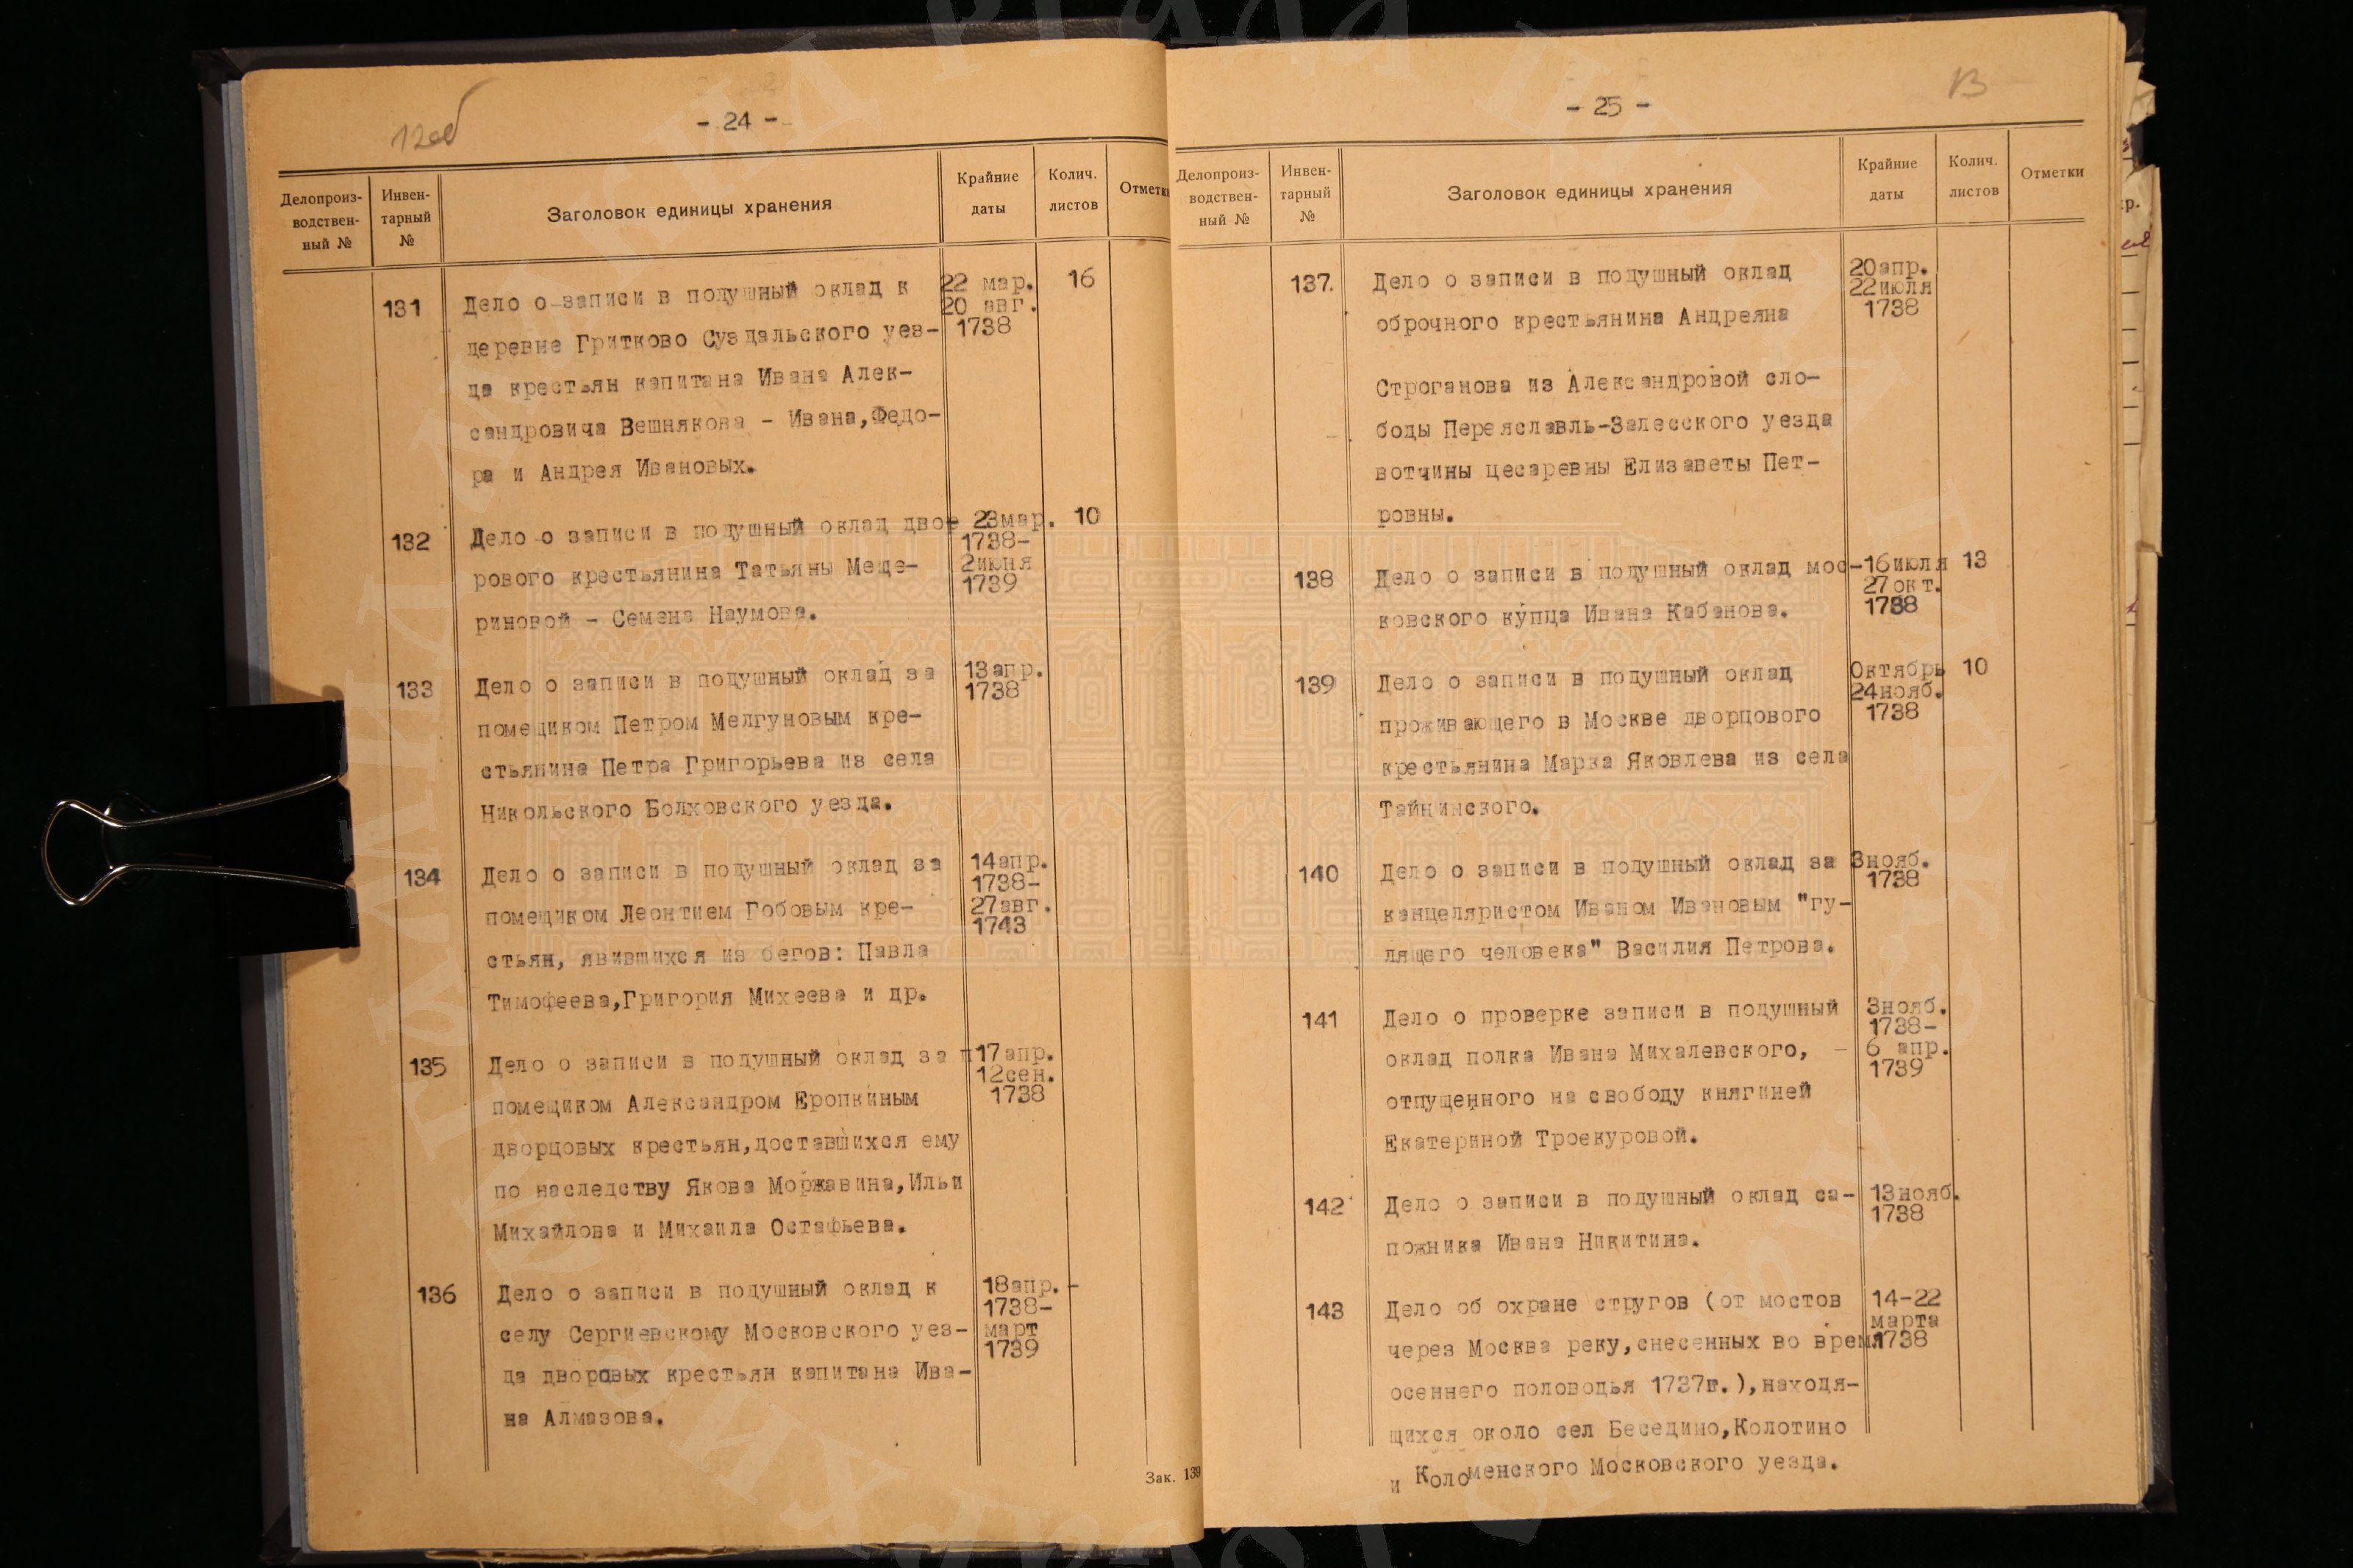 12об
- 24 -
Делопроиз-
водствен-
ный №
Инвен-
тарный
№
Заголовок единицы хранения
Крайние
даты
Колич.
листов
Отметки
131
Дело о записи в подушный оклад к
деревне Гритково Суздальского уез-
да крестьян капитана Ивана Алек-
сандровича Вешнякова - Ивана,Федо-
ра и Андрея Ивановых.
22 мар.
20 авг.
1738
16
132
Дело о записи в подушный оклад дво-
рового крестьянина Татьяны Меще-
риновой - Семена Наумова.
23мар.
1738-
2июня
1739
10
133
Дело о записи в подушный оклад за
помещиком Петром Мелгуновым кре-
стьянина Петра Григорьева из села
Никольского Болховского уезда.
13апр.
1738
134
Дело о записи в подушный оклад за
помещиком Леонтием Гобовым кре-
стьян, явившихся из бегов: Павла
Тимофеева,Григория Михеева и др.
14апр.
1738-
27авг.
1743
135
Дело о записи в подушный оклад за п
помещиком Александром Еропкиным
дворцовых крестьян,доставшихся ему
по наследству Якова Моржавина,Ильи
Михайлова и Михаила Остафьева.
17апр.
12сен.
1738
136
Дело о записи в подушный оклад к
селу Сергиевскому Московского уез-
да дворовых крестьян капитана Ива-
на Алмазова.
18апр.-
1738-
март
1739
Зак. 139
13
- 25 -
Делопроиз-
водствен-
ный №
Инвен-
тарный
№
Заголовок единицы хранения
Крайние
даты
Колич.
листов
Отметки
137.
Дело о записи в подушный оклад
оброчного крестьянина Андреяна
Строганова из Александровой сло-
боды Переяславль-Залесского уезда
вотчины цесаревны Елизаветы Пет-
ровны.
20апр.
22июля
1738
138
Дело о записи в подушный оклад мос-
ковского купца Ивана Кабанова.
16июля
27окт.
1738
13
139
Дело о записи в подушный оклад
проживающего в Москве дворцового
крестьянина Марка Яковлева из села
Тайнинского.
Октябрь
24нояб.
1738
10
140
Дело о записи в подушный оклад за
канцеляристом Иваном Ивановым "гу-
лящего человека" Василия Петрова.
3нояб.
1738
141
Дело о проверке записи в подушный
оклад полка Ивана Михалевского, -
отпущенного на свободу княгиней
Екатериной Троекуровой.
3нояб.
1738-
6 апр.
1739
142
Дело о записи в подушный оклад са-
пожника Ивана Никитина.
13нояб.
1738
143
Дело об охране стругов (от мостов
через Москва реку,снесенных во время
осеннего половодья 1737г.),находя-
щихся около сел Беседино,Колотино
и Коломенского Московского уезда.
14-22
марта
1738